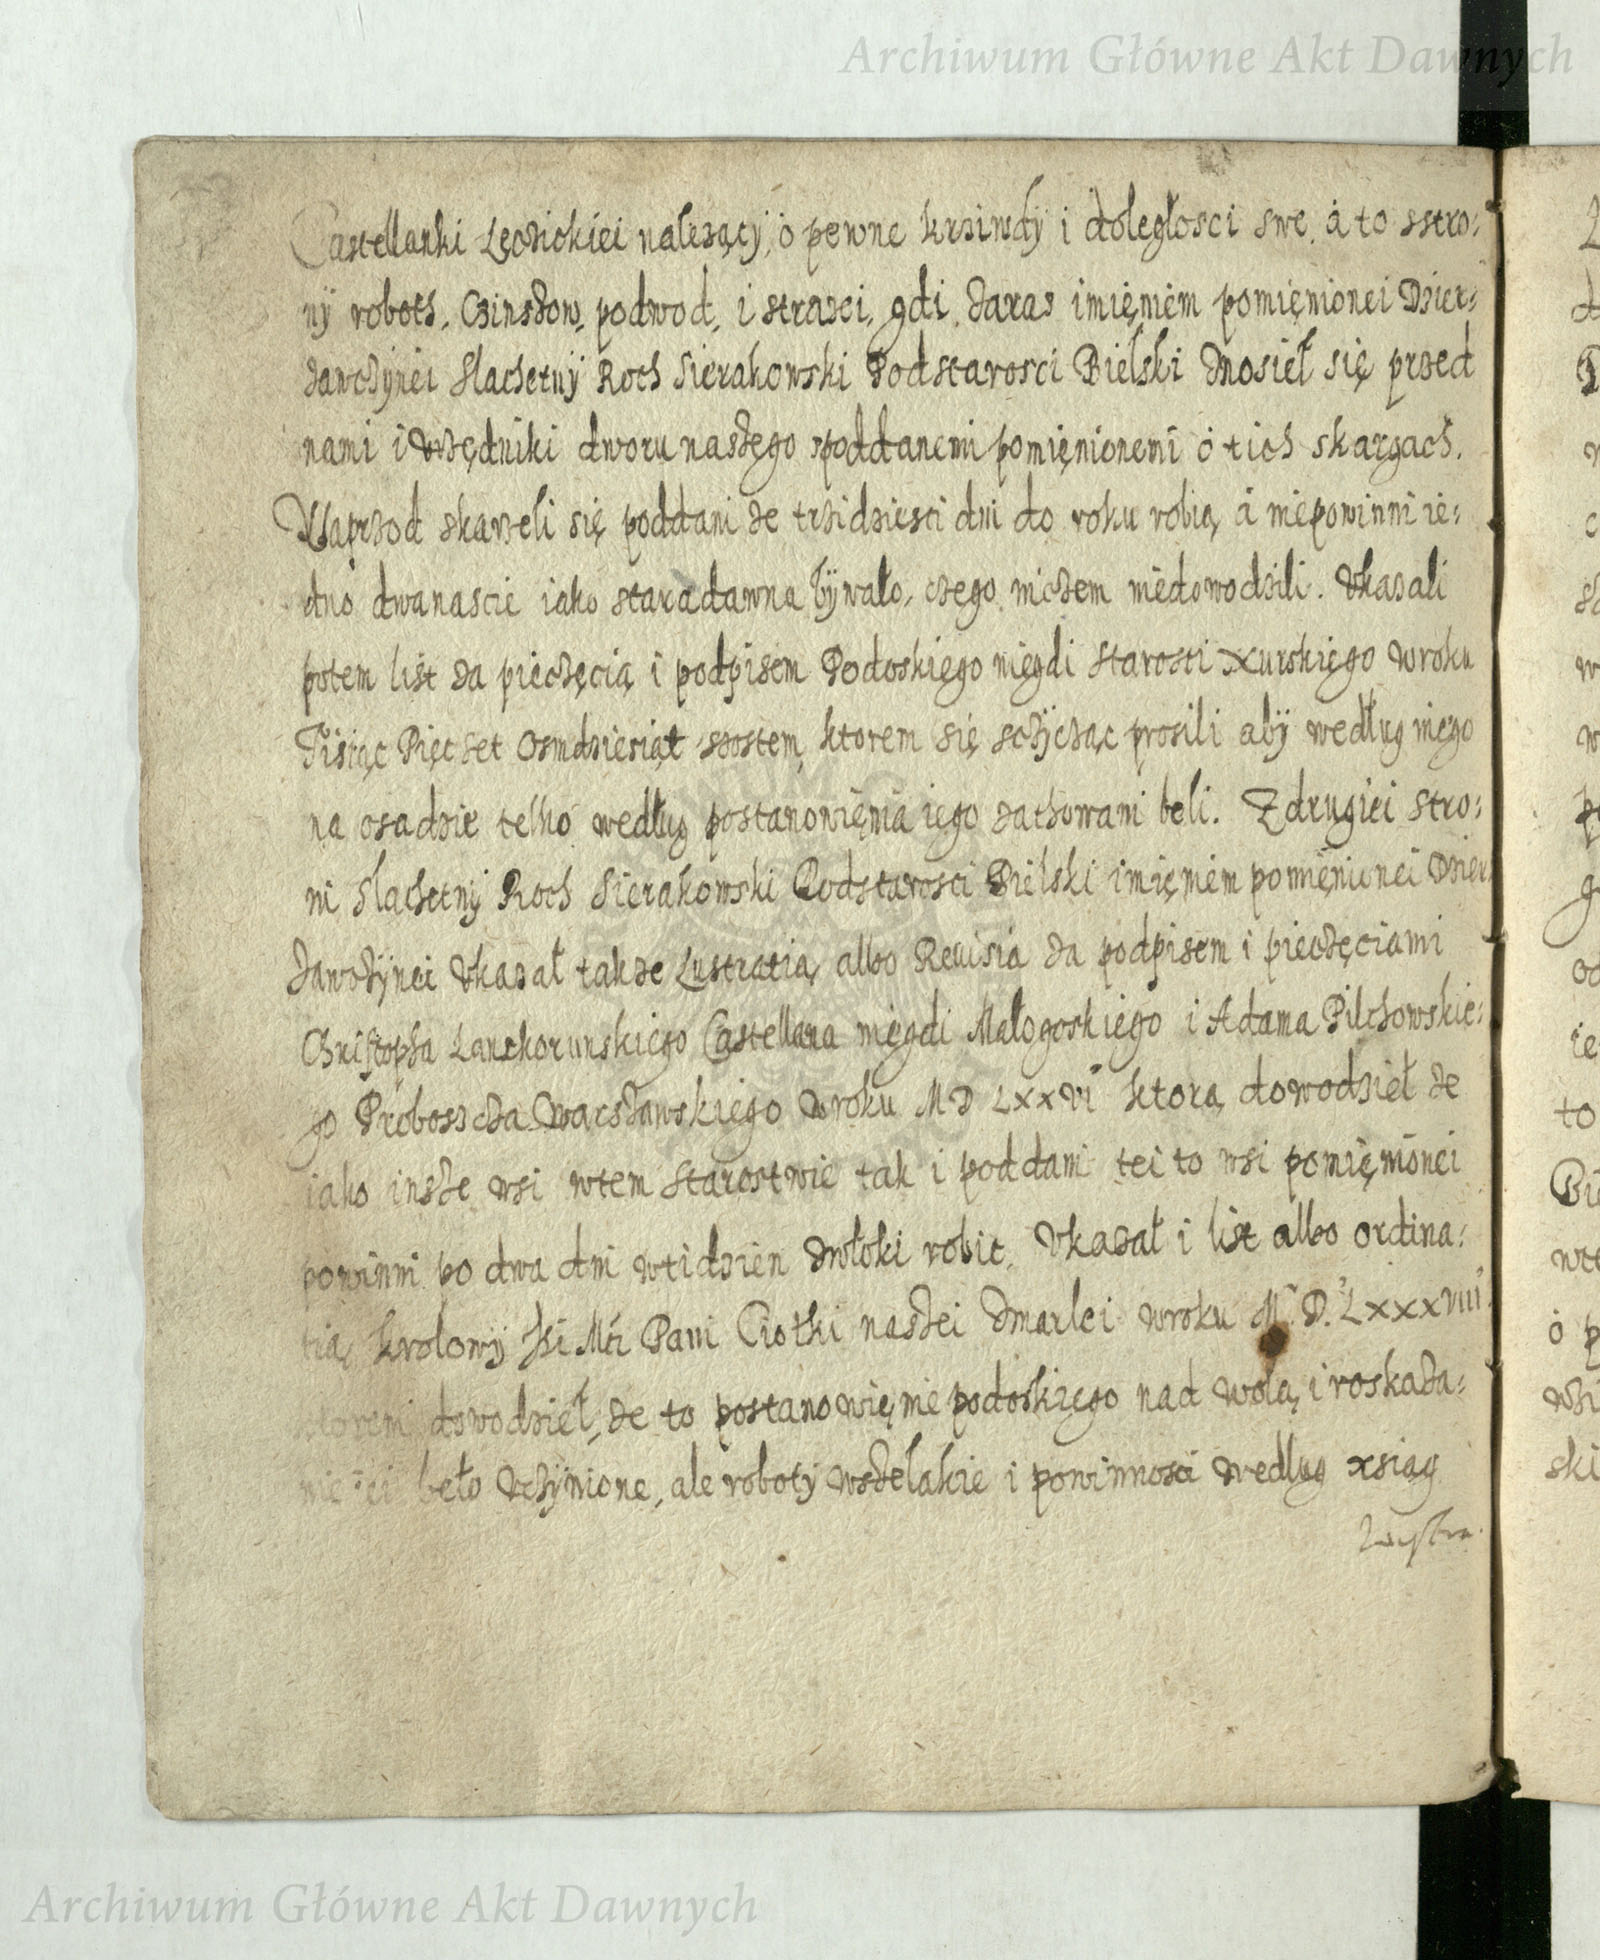 Archiwum Główne Akt Dawnych
Castellanki Lęczickiei należący, o pewne krziwdy i doległosci swe, á to sstro:
ny roboth, Czinszow, podwod, i strażei, gdi zaraz imięniem pomięnionei Dzier:
zawczÿnei Slachetnÿ Roch Sierakowski Podstarosci Bielski znosieł się przed
nami i Vrzędniki dworu naszego spoddanemi pomięnionemi ó tich skargach.
Naprzod skarzeli się poddani że trzidziesci dni do roku robią, á niepowinni ie:
dno dwanascie iako staradawna bÿwało, czego niczem niedowodzili. Vkazali
potem list za pieczęcią i podpisem Podoskiego niegdi Starosti xurskięgo wroku
Tisiąc Pięc set Osmdziesiąt szostem, ktorem się sczÿcząc prosili abÿ według niego
na osadzie telko według postanowięnia iego zachowani beli. Z drugiei stro:
ni Slachetnÿ Roch Sierakowski Podstarosci Bielski imięniem pomięnionei Dzier
zawczÿnei Vkazał takze Lustratią albo Reuisią za podpisem i pieczęciami
Christopha Lanckorunskiego Castellana niegdi Małogoskiego i Adama Pilchowskie:
go Proboszcza Warszawskiego wroku MD LXXVI ktorą dowodzieł że
iako insze wsi wtem Starostwie tak i poddani tei to wsi pomięnionei
powinni po dwa dni wtidzien zwłoki robic. Vkazał i list albo ordina:
tią krolowÿ Jei Mći Pani Ciotki naszei zmarlei wroku M.D.LXXXVIII
ktorem dowodzieł, że to postanowięnie podoskięgo nad wolą i roskaza:
nie iei beło Vczÿnione, ale robotÿ wszelakie i powinnosci według xsiąg
Lustra
Archiwum Główne Akt Dawnych